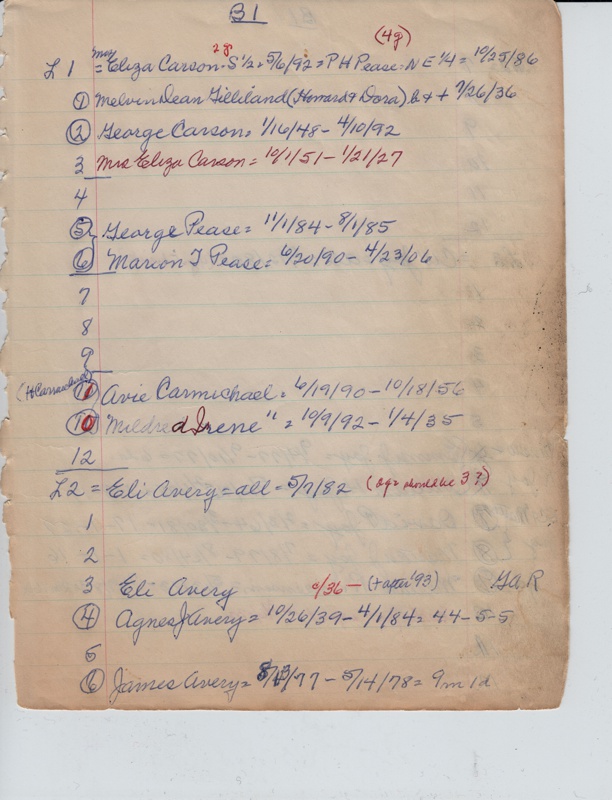 B1
(4g)
2g
L 1 = Mrs Eliza Carson = S 1/2 = 5/6/92 = P H Pease = N E 1/4 = 10/25/86
1 Melvin Dean Gilliland (Howard & Dora) b & + 7/26/36
2 George Carson = 1/16/48 - 4/10/92
3 Mrs Eliza Carson = 10/1/51 - 1/21/27
4
5 George Pease = 11/1/84 - 8/1/85
6 Marion T Pease = 6/20/90 - 4/23/06
7
8
9
11 Avie Carmichael = 6/19/90 - 10/18/56
10 Mildred Irene " = 10/9/92 - 1/4/35
12
L2 = Eli Avery = all = 5/7/82
1
2
3 Eli Avery c/36 - (+ after '93) G.A.R
4 Agnes J Avery = 10/26/39 - 4/1/84 = 44-5-5
5
6 James Avery = 8/13/77 - 5/14/78 = 9m 1d